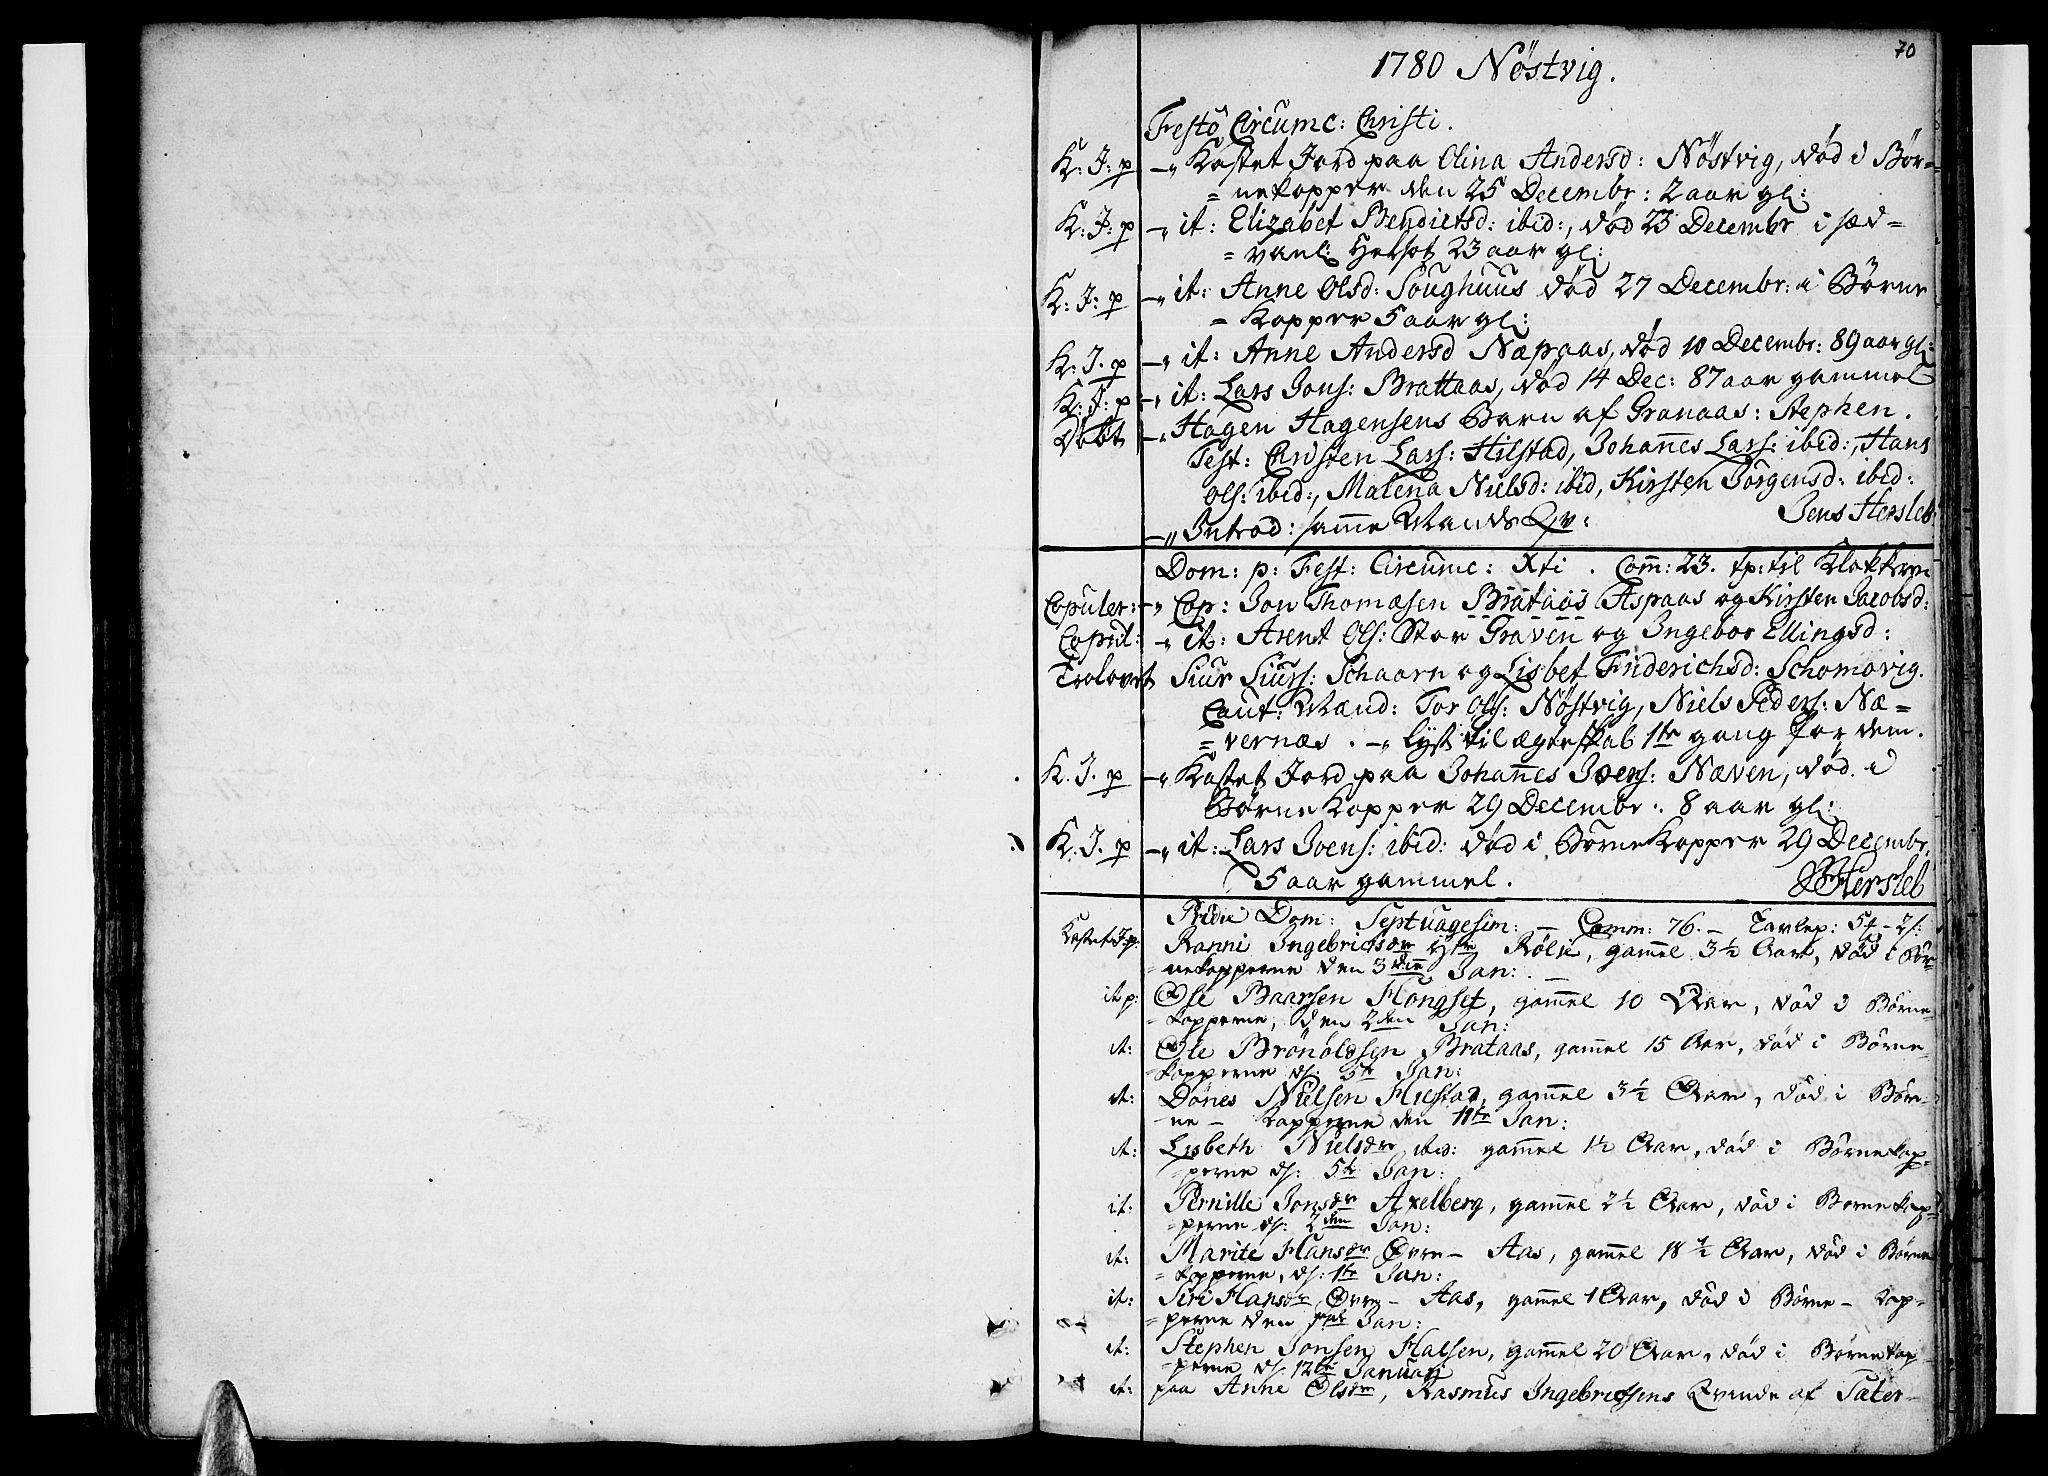 70
1780 Nöstvig.
Festo Circumc: Christi.
K: J: p -, Kastet Jord paa Olina Andersd: Nöstvig, død i Bør-
= nekopper den 25 Decembr: 2 aar gl:
K: J: p -, it: Elizabet Bendictsd: ibid:, død 23 Decembr i sæd-
= vanl: Helsot 23 aar gl:
K: J: p -, it: Anne Olsd: Soughuus død 27 Decembr: i Børne
= Kopper 5 aar gl:
K: J. p -, it: Anne Andersd Næpaas, død 10 Decembr: 89 aar gl:
K: J: p -, it: Lars Jons: Brattaas, død 14 Dec: 87 aar gammel
Døbt -, Hagen Hagensens Barn af Granaas: Stephen.
Test: Christen Lars: Hilstad, Johannes Lars: ibid:, Hans
Ols: ibid:, Malena Nielsd: ibid, Kirsten Jörgensd: ibid:
-,, Introd: samme Mands Qv: Jens Hersleb
Dom: p: Fest: Circumc: Xti. Com: 23. tp: til Klokkeren
Copuler: -, Cop: Jon Thomæsen Brataas Aspaas og Kirsten Jacobsd:
Copul: -, it: Arent Ols: Stor Graven og Ingebor Ellingsd:
Trolovet Siur Siurs: Schaarn og Lisbet Friderichsd: Schomovig.
Caut: Mænd: Tor Ols: Nöstvig, Niels Peders: Næ-
= vernæs. -, lyst til ægteskab 1te gang for dem.
K. J. p -, Kastet Jord paa Johannes Joens: Næven, død i
Børne Kopper 29 Decembr: 8 aar gl:
K. J. p -, it: Lars Joens: ibid: død i Børne Kopper 29 Decembr,
5 aar gammel. Hersleb
Pridie Dom: Septuagesim: - Comm: 76. - Tavlep:
Kastet J: p: Ranni Ingebrichsdr Rölie, gammel 3½ Aar, død i Bør-
= nekopperne den 3die Jan:
it p: Ole Baarsen Hongset, gammel 10 Aar, død i Børne-
= kopperne, den 2den Jan:
it: Ole Brönoldsen Brataas, gammel 15 Aar, død i Børne-
= kopperne d: 5te Jan:
it: Dönes Nielsen Hilstad, gammel 3½ Aar, død i Bør-
ne - kopperne den 11te Jan:
it: Lisbeth Nielsdr ibid: gammel 1½ Aar, død i Børnekop-
= perne d: 5te Jan:
it: Pernille Jonsdr Axelberg, gammel 2½ Aar, død i Børnekop-
= perne d: 2den Jan:
it: Marite Hansdr Øvre - Aas, gammel 18½ Aar, død i Børne
= kopperne, d: 1te Jan:
it: Siri Hansdr Øvre - Aas, gammel 1 Aar, død i Børne - kop-
= perne den Jan:
it: Stephen Jonsen Halsen, gammel 20 Aar, død i Børnekop-
= perne d: 12te Januari
it: paa Anne Olsdr, Rasmus Ingebrictsens Qvinde af Sæter-